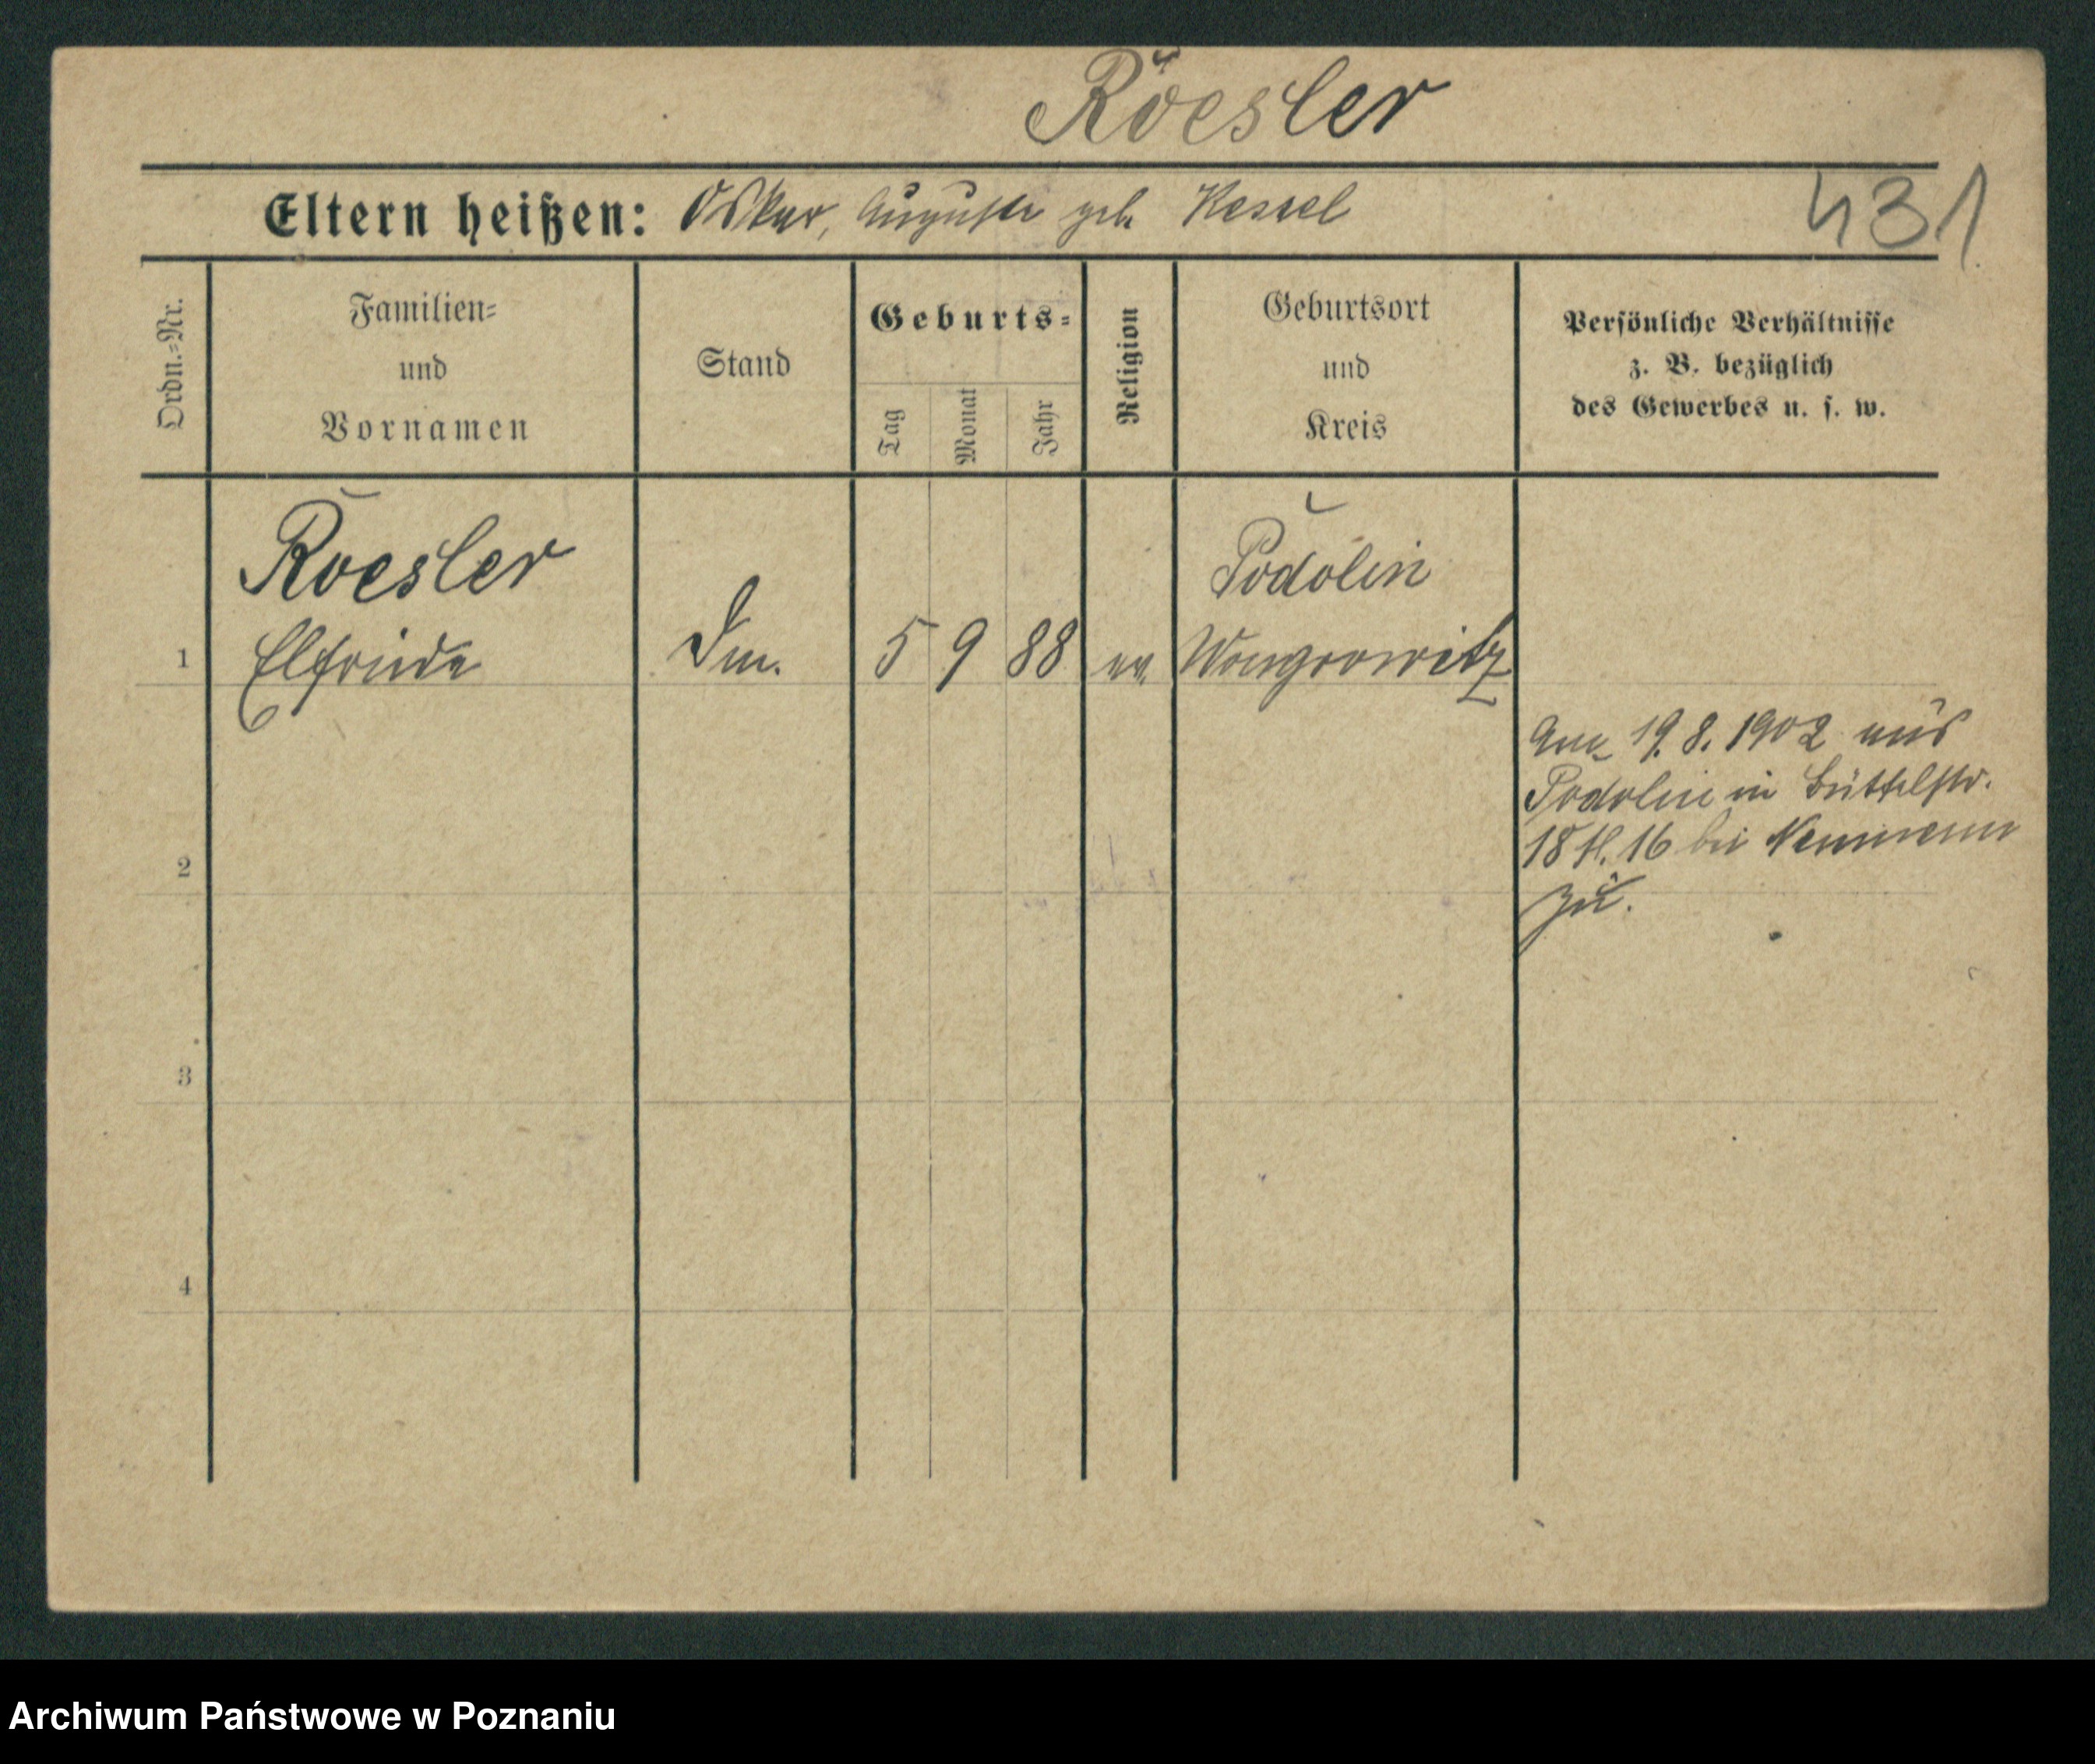 Roesler
Eltern heißen: Oskar, Auguste geb. Kessel
431
Ordn.-Nr.
Familien-
und
Vornamen
Stand
Geburts-
Tag
Monat
Jahr
Religion
Geburtsort
und
Kreis
Persönliche Verhältnisse
z. B. bezüglich
des Gewerbes u. s. w.
Roesler
Podolin
1 Elfriede 5 9 88 ev. Wongrowitz
Am 19. 8. 1902 aus
Podolin in Büttelstr.
2
18 16 bei
zu.
3
4
Archiwum Państwowe w Poznaniu